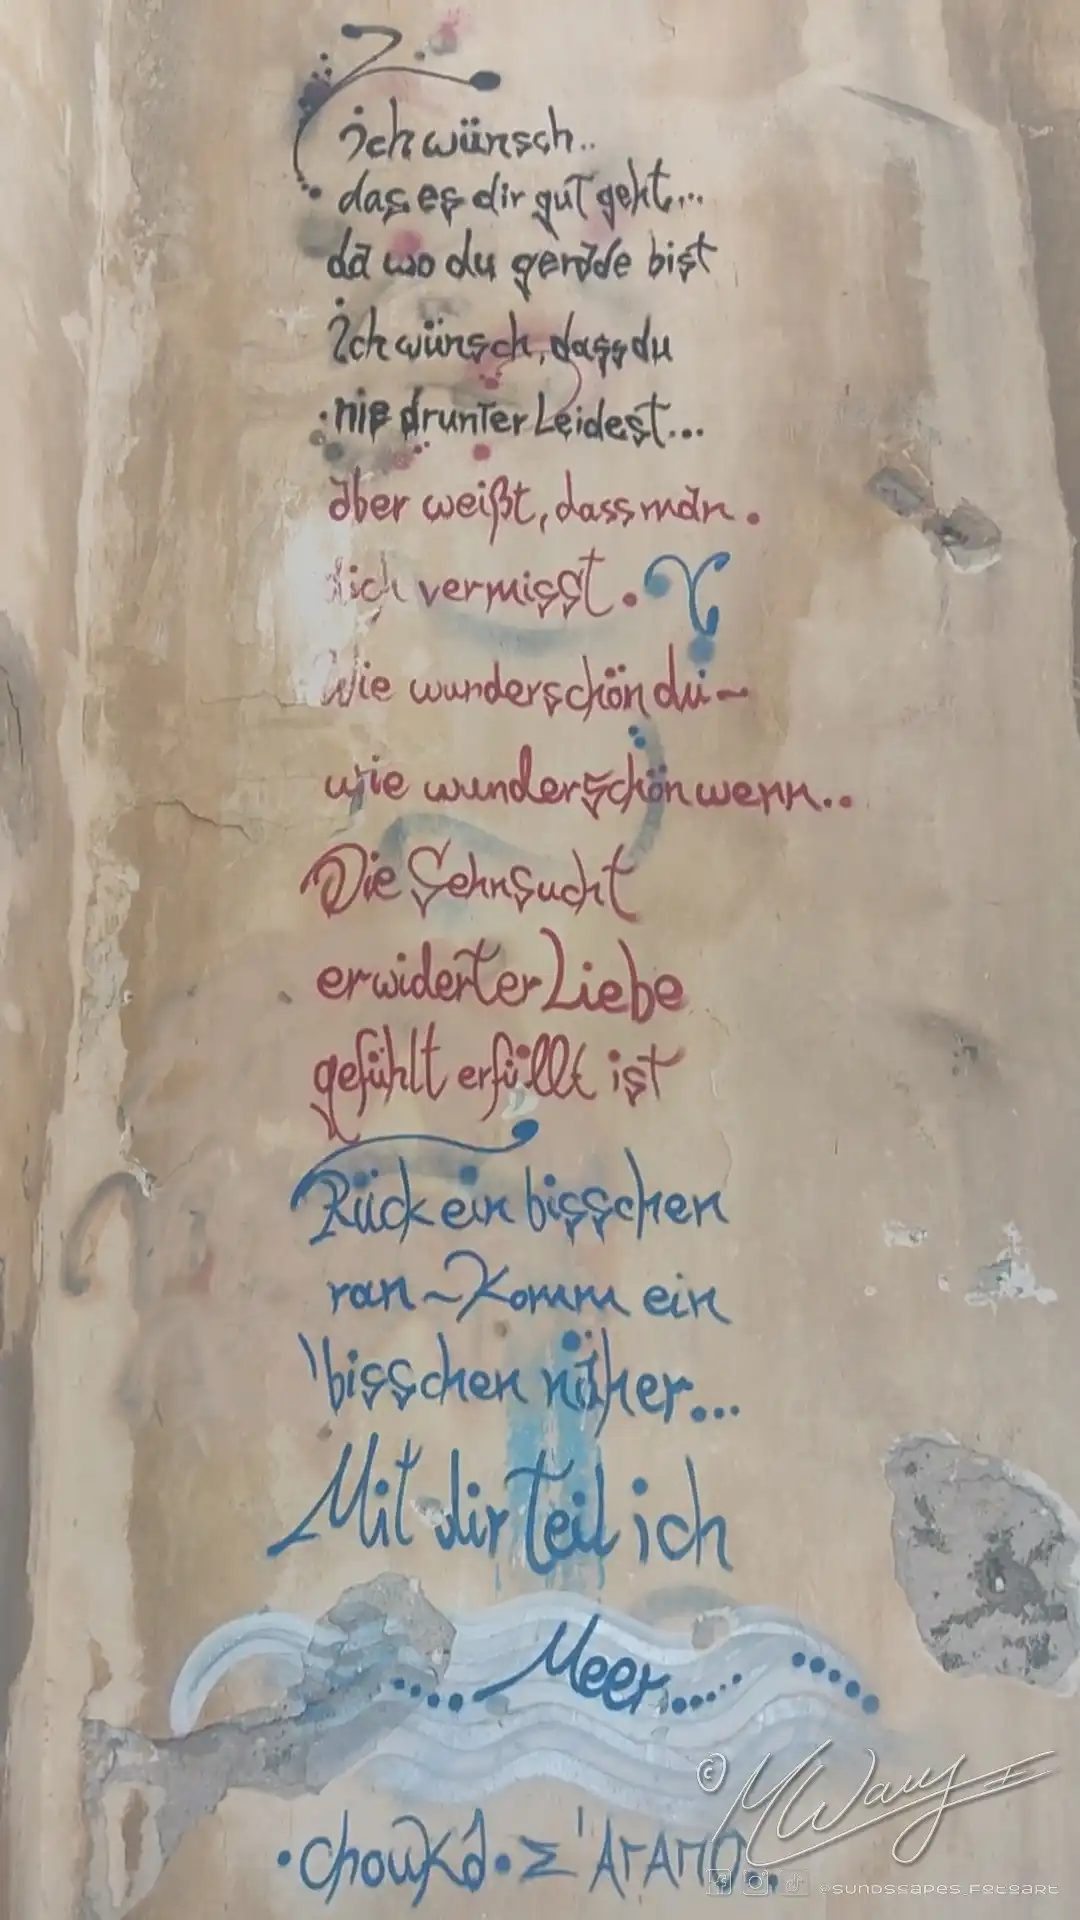 ich wünsch..
das es dir gut geht...
da wo du gerade bist
Ich wünsch, dass du
nie drunter Leidest...
aber weißt, dass man.
dich vermisst.
Wie wunderschön du~
wie wunderschön wenn..
Die Sehnsucht
erwiderter Liebe
gefühlt erfüllt ist
Rück ein bisschen
ran ~ Komm ein
bisschen näher...
Mit dir teil ich
Meer......
©MWay
•Chouka•Σ'ΑΓΑΠΩ..
@SUNDSSAPES_FOTOART